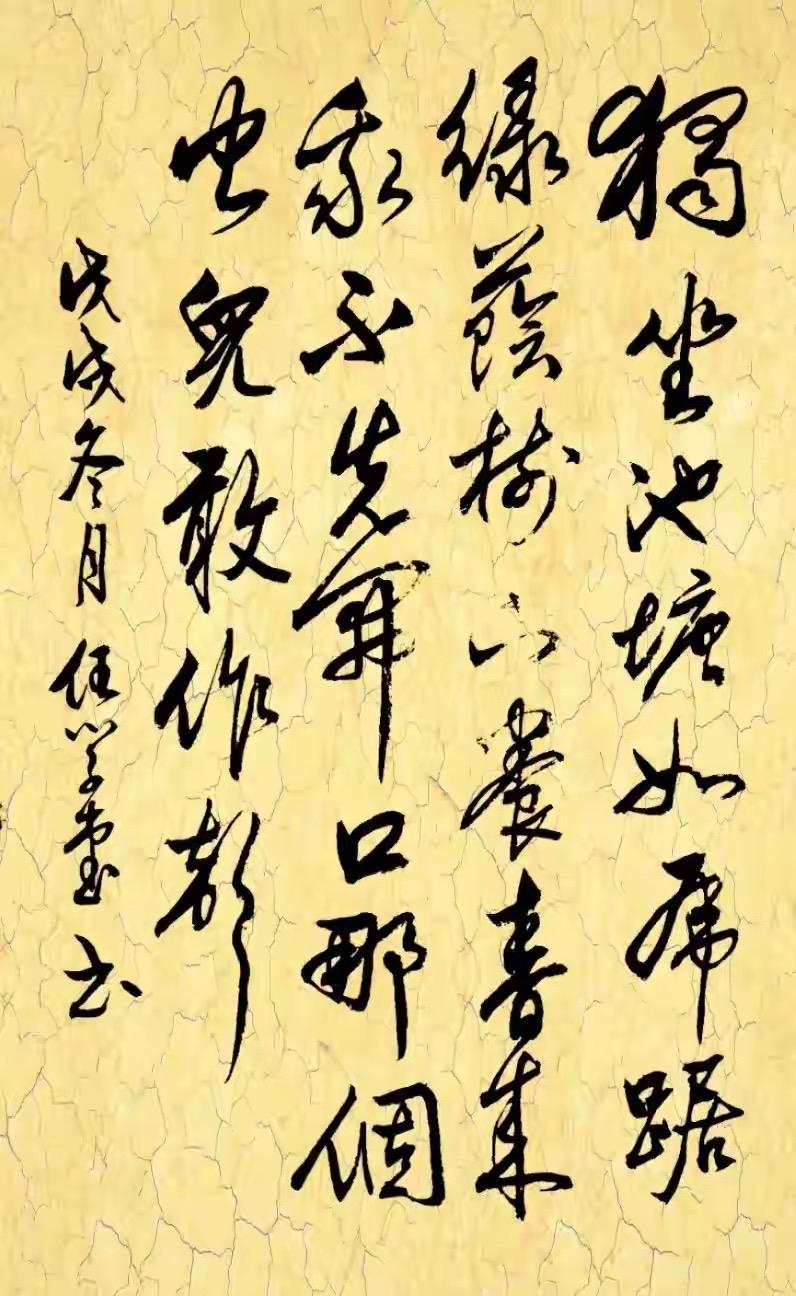 獨坐池塘如虎踞
綠蔭樹下養春來
我不先開口那個
虫兒敢作聲
戊戌冬月任學堂书